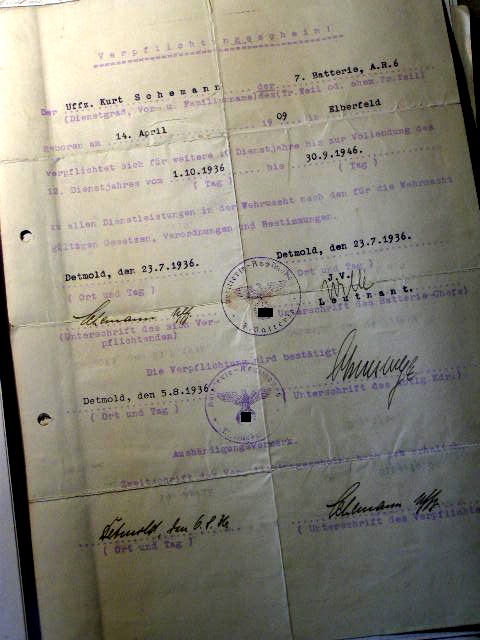 Verpflichtungsschein!
Der Uffz. Kurt Schemann der 7. Batterie, A.R.6
(Dienstgrad, Vor- u. Familienname) des (Tr.Teil od. ehem. Tr.Teil)
Geboren am 14. April 19 09 in Elberfeld
verpflichtet sich für weitere Dienstjahre bis zur Vollendung des
12. Dienstjahres vom 1.10.1936 bis 30.9.1946.
( Tag ) ( Tag )
zu allen Dienstleistungen in der Wehrmacht nach den für die Wehrmacht
gültigen Gesetzen, Verordnungen und Bestimmungen.
Detmold, den 23.7.1936. Detmold, den 23.7.1936.
( Ort und Tag ) ( Ort und Tag )
J.V.
Schemann Uffz. Leutnant.
(Unterschrift des sich Ver- (Unterschrift des Batterie-Chefs)
pflichtenden)
Die Verpflichtung wird bestätigt
Detmold, den 5.8.1936.
( Ort und Tag ) (Unterschrift des Kdr.)
Aushändigungsvermerk.
Zweitschrift des Verpflichtungsscheins habe ich erhalten.
Detmold, den 6.8.36 Schemann Uffz.
( Ort und Tag ) ( Unterschrift des Verpflichte